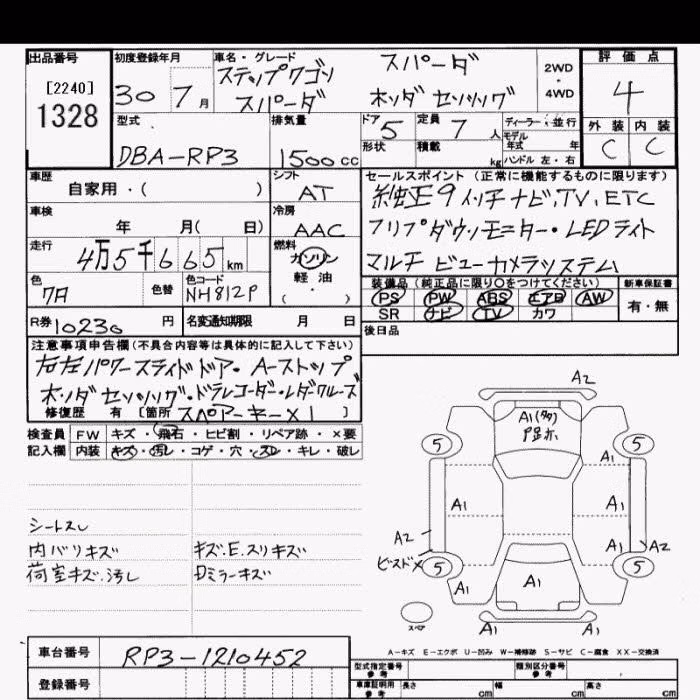 出品番号
[2240]
1328
初度登録年月
30 7月
車名・グレード
ステップワゴン
スパーダ
スパーダ
ホンダセンシング
2WD
・
4WD
評価点
4
外装 内装
C C
型式
DBA-RP3
排気量
1500cc
ドア
5
形状
定員
7人
積載
kg
ディーラー・並行
モデル
年式 年
ハンドル 左・右
車歴
自家用・( )
シフト
AT
車検
年 月( 日)
冷房
AAC
走行
4万5千665km
燃料
ガソリン
軽油
( ・ )
色
色替
色コード
NH812P
R券
10230円
名変通知期限 月 日
セールスポイント (正常に機能するものに限ります)
純正9インチナビ,TV,ETC
フリップダウンモニター・LEDライト
マルチビューカメラシステム
装備品(純正品に限り○をつけてください)
新車保証書
PS PW ABS エアB AW
SR ナビ TV カワ
有・無
後日品
注意事項申告欄(不具合内容等は具体的に記入して下さい)
右左パワースライドドア・Aーストップ
ホンダセンシング・ドラレコーダー・レダクルーズ
修復歴 有 [箇所 スペアーキー×1 ]
検査員
記入欄
FW キズ・飛石・ヒビ割・リペア跡・×要
内装 キズ・汚レ・コゲ・穴・スレ・キレ・破レ
シートスレ
内バリキズ
キズ.E.スリキズ
荷室キズ.汚し
Dミラーキズ
A2
A1(タタ)
5 5
A1
A1 A1
A1
A2
A2
ビスドメ
5 5
A1
A1
A1 A1
スペア
A-キズ E-エクボ U-凹み W-補修跡 S-サビ C-腐食 XX-交換済
車台番号
RP3-1210452
登録番号
型式指定番号
参考
類別区分番号
参考
車庫証明用
参考
長さ cm 幅 cm 高さ cm